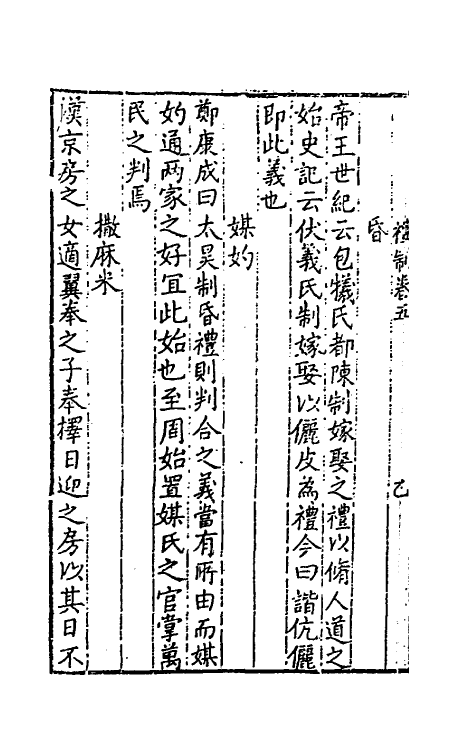 禮制卷五 乙
昏
帝王世紀云包犧氏都陳制嫁娶之禮以脩人道之
始史記云伏羲氏制嫁娶以儷皮為禮今曰諧伉儷
即此義也
媒妁
鄭康成曰太昊制昏禮則判合之義當有所由而媒
妁通两家之好宜此始也至周始置媒氏之官掌萬
民之判焉
撒麻米
漢京房之女適翼奉之子奉擇日迎之房以其日不